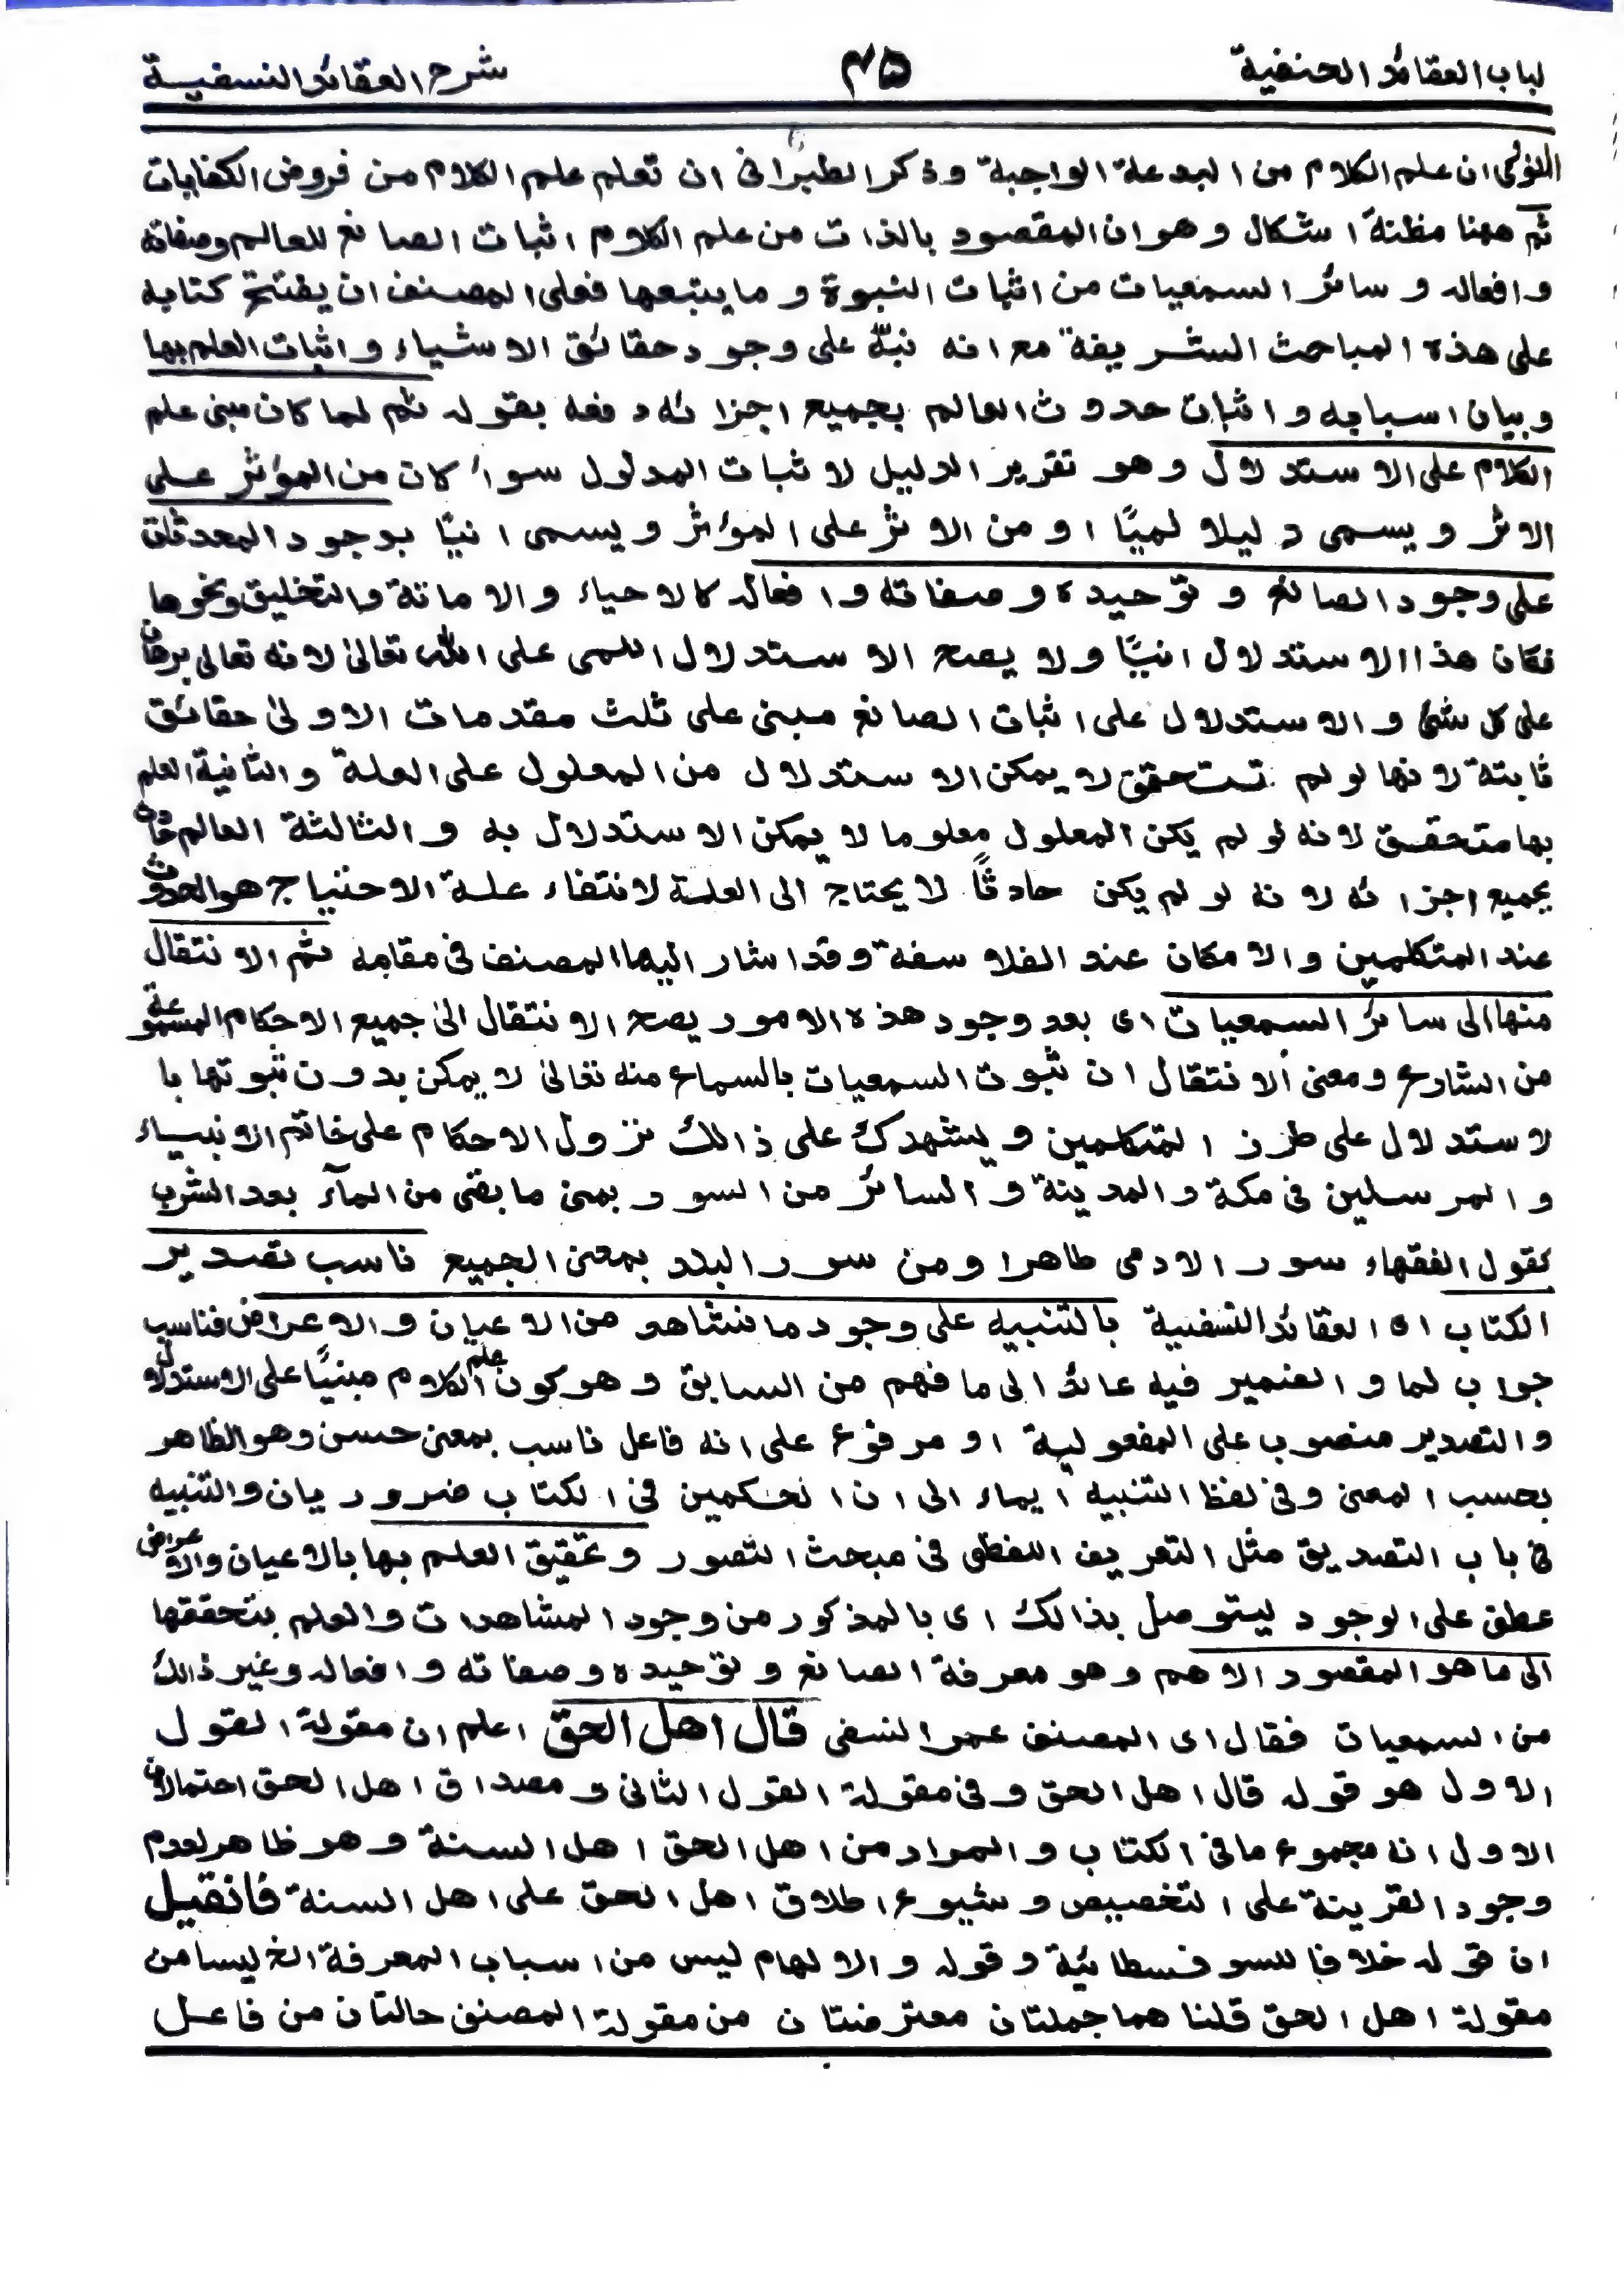 لباب العقائد الحنفية ٤٥ شرح العقائد النسفية
النووی ان علم الكلام من البدعة الواجبة وذكر الطبرانی ان تعلم علم الكلام من فروض الكفايات
ثم ههنا مظنة اشكال وهو ان المقصود بالذات من علم الكلام اثبات الصانع للعالم وصفاته
وافعاله وسائر السمعيات من اثبات النبوة وما يتبعها فعلى المصنف ان يفتتح كتابه
على هذه المباحث الشريفة مع انه نبّه على وجود حقائق الاشياء واثبات العلم بها
وبيان اسبابه واثبات حدوث العالم بجميع اجزائه دفعه بقوله ثم لما كان مبنى علم
الكلام على الاستدلال وهو تقرير الدليل لاثبات المدلول سواء كان من المؤثر على
الاثر ويسمى دليلا لميًا او من الاثر على المؤثر ويسمى انيًا بوجود المحدثات
على وجود الصانع وتوحيده وصفاته وافعاله كالاحياء والاماتة والتخليق ونحوها
فكان هذا الاستدلال انيًا ولا يصح الاستدلال اللمى على الله تعالىٰ لانه تعالى برهان
على كل شئ والاستدلال على اثبات الصانع مبنى على ثلث مقدمات الاولىٰ حقائق
ثابتة لانها لو لم تتحقق لا يمكن الاستدلال من المعلول على العلة والثانية العلم
بها متحقق لانه لو لم يكن المعلول معلوما لا يمكن الاستدلال به والثالثة العالم حادث
بجميع اجزائه لانه لو لم يكن حادثًا لا يحتاج الى العلة لانتفاء علة الاحتياج هو الحدوث
عند المتكلمين والامكان عند الفلاسفة وقد اشار اليها المصنف فی مقامه ثم الانتقال
منها الى سائر السمعيات ای بعد وجود هذه الامور يصح الانتقال الىٰ جميع الاحكام المسموعة
من الشارع ومعنى الانتقال ان ثبوت السمعيات بالسماع منه تعالىٰ لا يمكن بدون ثبوتها با
لاستدلال على طرز المتكلمين ويشهدك على ذالك نزول الاحكام على خاتم الانبياء
والمرسلين فی مكة والمدينة والسائر من السور بمعنى ما بقى من المآء بعد الشرب
كقول الفقهاء سور الادمى طاهر او من سور البلد بمعنى الجميع ناسب تصدير
الكتاب ای العقائد النسفية بالتنبيه على وجود ما نشاهد من الاعيان والاعراض فناسب
جواب لما والضمير فيه عائد الى ما فهم من السابق وهو كون علم الكلام مبنيًا على الاستدلال
والتصدير منصوب على المفعولية او مرفوع على انه فاعل ناسب بمعنى حسن وهو الظاهر
بحسب المعنى وفی لفظ التنبيه ايماء الى ان الحكمين فی الكتاب ضروريان والتنبيه
فی باب التصديق مثل التعريف اللفظى فی مبحث التصور وتحقيق العلم بها بالاعيان والاعراض
عطف على الوجود ليتوصل بذالك ای بالمذكور من وجود المشاهدات والعلم بتحققها
الى ما هو المقصود الاهم وهو معرفة الصانع وتوحيده وصفاته وافعاله وغير ذالك
من السمعيات فقال ای المصنف عمر النسفى قال اهل الحق اعلم ان مقولة القول
الاول هو قوله قال اهل الحق وفی مقولة القول الثانی ومصداق اهل الحق احتمالان
الاول انه مجموع ما فی الكتاب والمراد من اهل الحق اهل السنة وهو ظاهر لعدم
وجود القرينة على التخصيص وشيوع اطلاق اهل الحق على اهل السنة فانقيل
ان قوله خلافا للسوفسطائية وقوله والالهام ليس من اسباب المعرفة الخ ليسا من
مقولة اهل الحق قلنا هما جملتان معترضتان من مقولة المصنف حالتان من فاعل